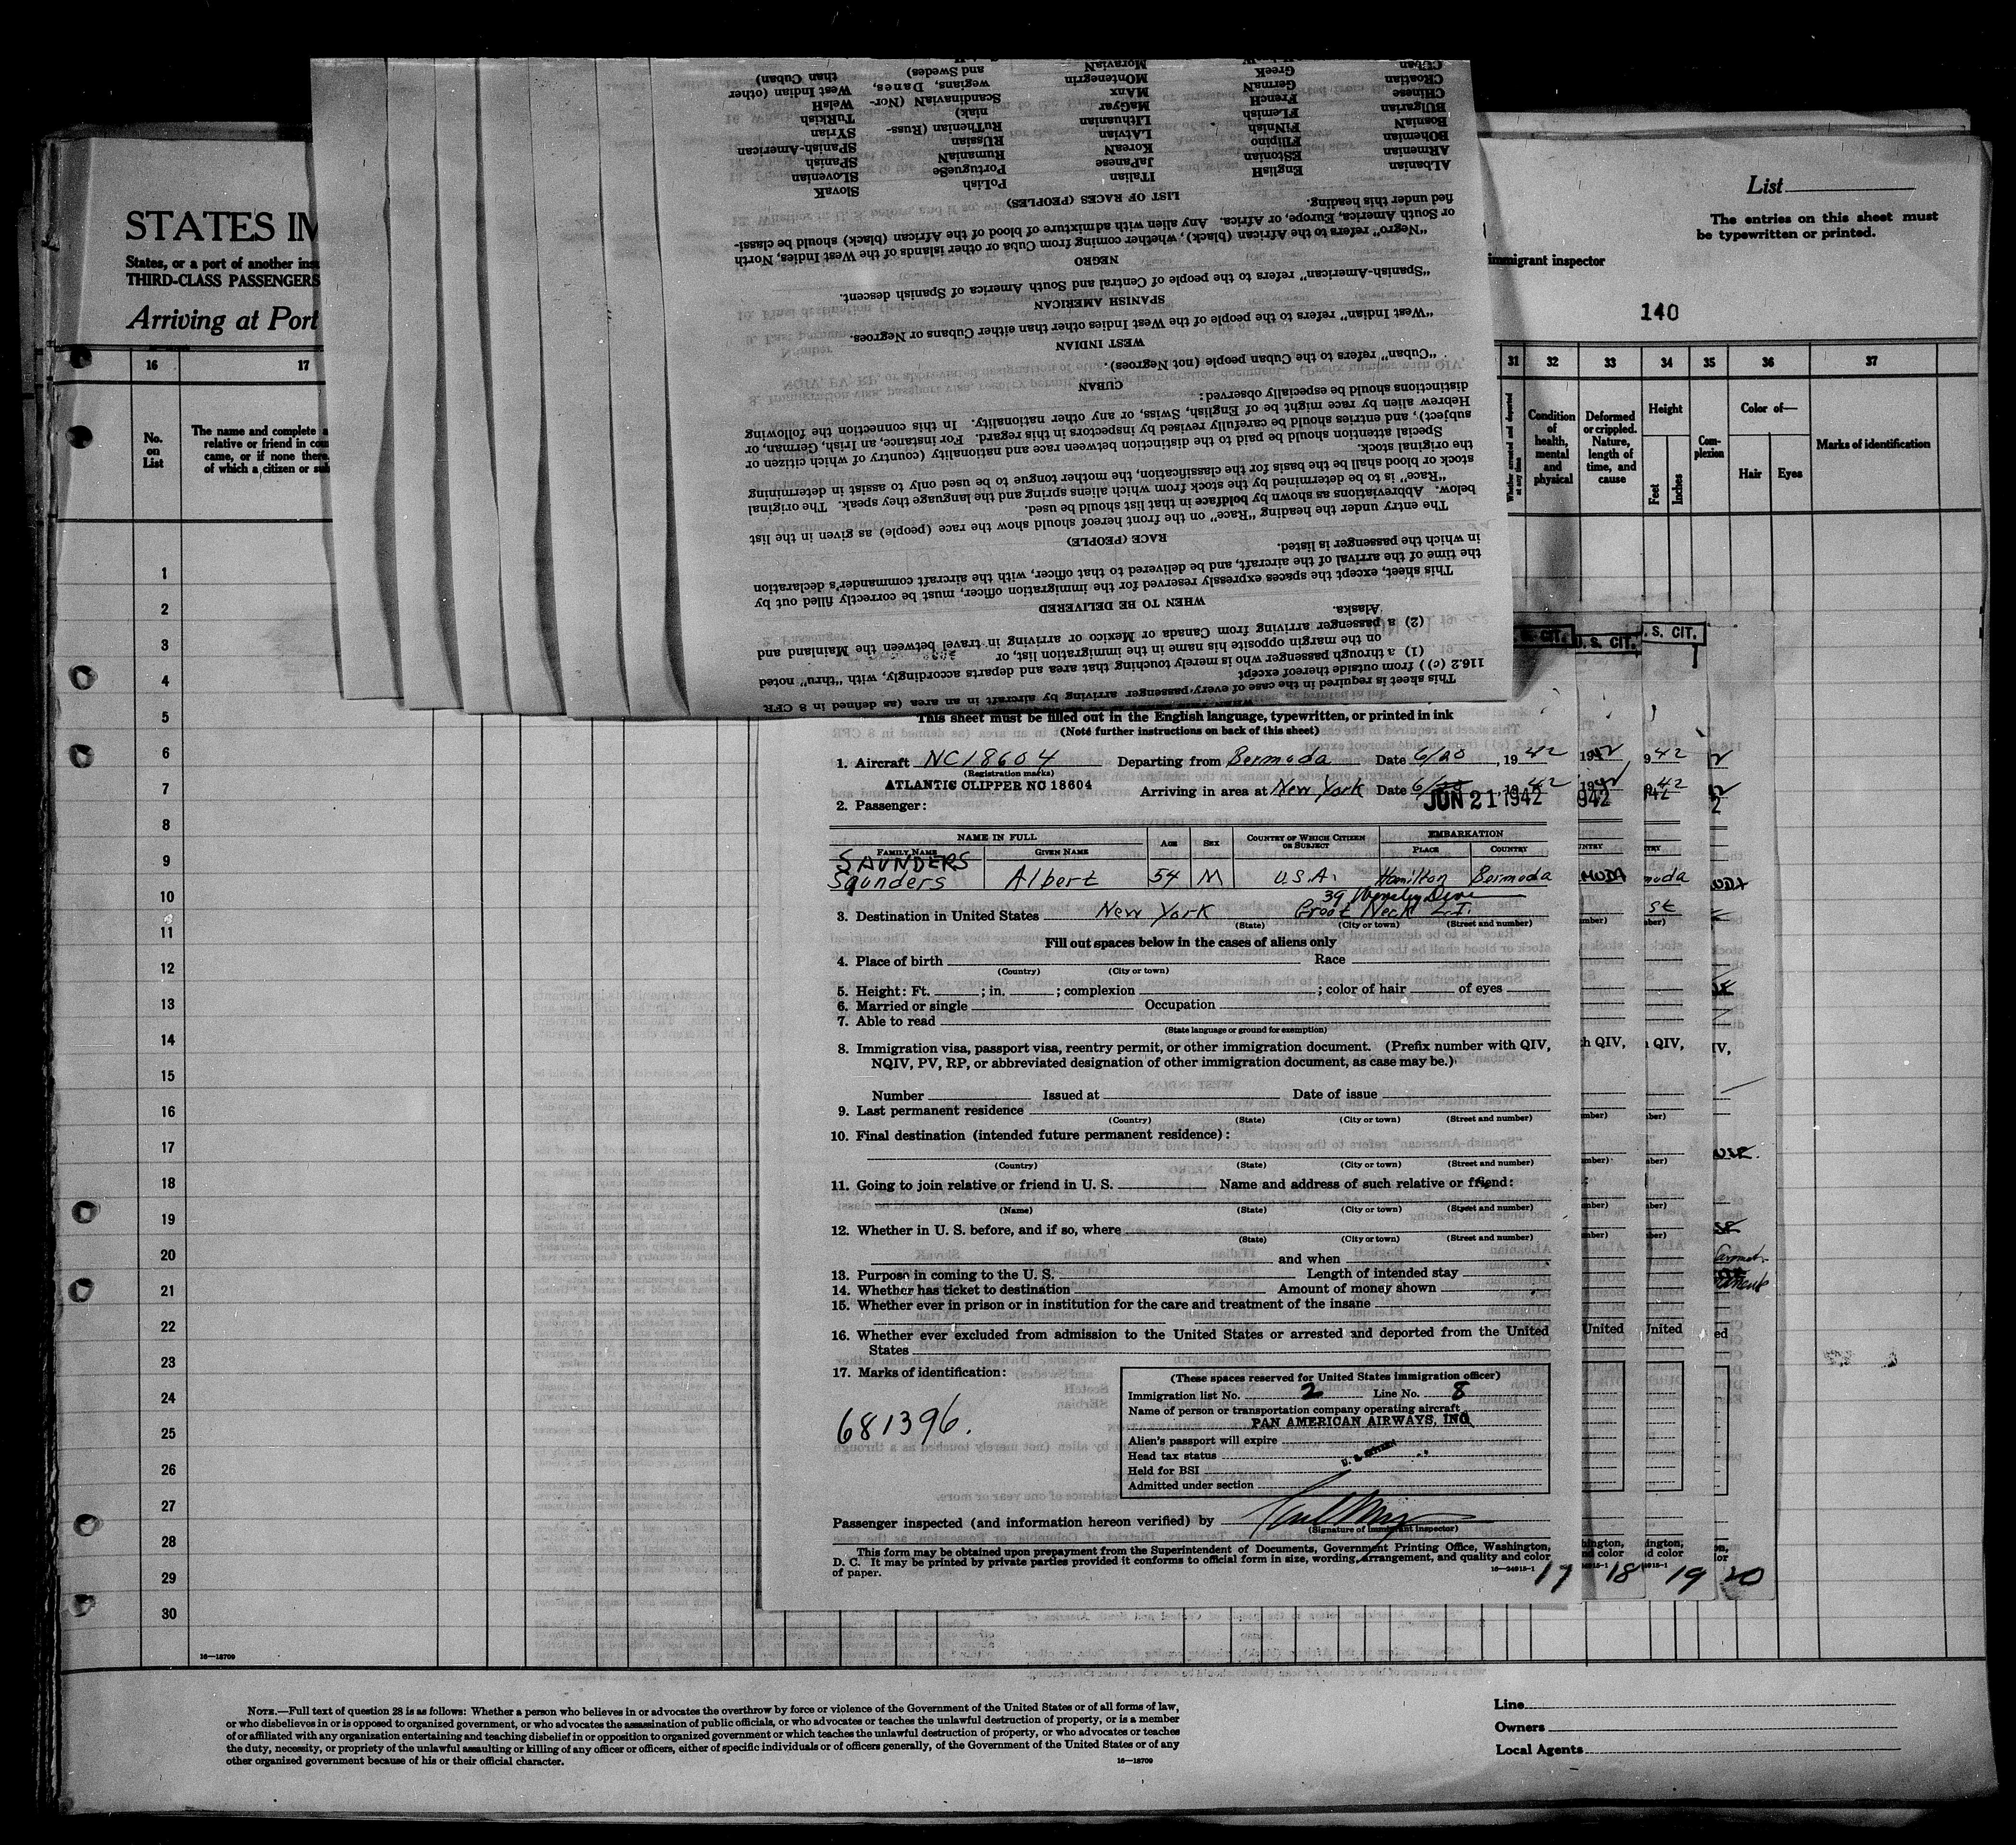 STATES IM
States, or a port of another ins
THIRD-CLASS PASSENGERS
Arriving at Port
List
The entries on this sheet must
be typewritten or printed.
immigrant inspector
140
16 17
31 32 33 34 35 36 37
No.
on
List
The name and complete a
relative or friend in cou
came, or if none there,
of which a citizen or sub
Whether arrested and deported
at any time
Condition
of
health,
mental
and
physical
Deformed
or crippled.
Nature,
length of
time, and
cause
Height
Feet
Inches
Com-
plexion
Color of—
Hair
Eyes
Marks of identification
1
2
3
4
5
6
7
8
9
10
11
12
13
14
15
16
17
18
19
20
21
22
23
24
25
26
27
28
29
30
16—18709
This sheet is required in the case of every passenger arriving by aircraft in an area (as defined in 8 CFR
116.2 (c)) from outside thereof except
(1) a through passenger who is merely touching that area and departs accordingly, with "thru" noted
on the margin opposite his name in the immigration list, or
(2) a passenger arriving from Canada or Mexico or arriving in travel between the Mainland and
Alaska.
WHEN TO BE DELIVERED
This sheet, except the spaces expressly reserved for the immigration officer, must be correctly filled out by
the time of the arrival of the aircraft, and be delivered to that officer, with the aircraft commander's declaration
in which the passenger is listed.
RACE (PEOPLE)
The entry under the heading "Race" on the front hereof should show the race (people) as given in the list
below. Abbreviations as shown by boldface in that list should be used.
"Race" is to be determined by the stock from which aliens spring and the language they speak. The original
stock or blood shall be the basis for the classification, the mother tongue to be used only to assist in determining
the original stock.
Special attention should be paid to the distinction between race and nationality (country of which citizen or
subject), and entries should be carefully revised by inspectors in this regard. For instance, an Irish, German, or
Hebrew alien by race might be of English, Swiss, or any other nationality. In this connection the following
distinctions should be especially observed:
CUBAN
"Cuban" refers to the Cuban people (not Negroes).
WEST INDIAN
"West Indian" refers to the people of the West Indies other than either Cubans or Negroes.
SPANISH AMERICAN
"Spanish-American" refers to the people of Central and South America of Spanish descent.
NEGRO
"Negro" refers to the African (black), whether coming from Cuba or other islands of the West Indies, North
or South America, Europe, or Africa. Any alien with admixture of blood of the African (black) should be classi-
fied under this heading.
LIST OF RACES (PEOPLES)
ALbanian EnglisH ITalian PoLish SlovaK
ARmenian EStonian JaPanese PortugueSe SLovenian
BOhemian FIlipino KoreaN RumaniaN SPanish
BosniaN FiNnish LAtvian RUssian SPanish-American
BUlgarian FLemish LIthuanian RuThenian (Russ- SYrian
CHinese FrencH MaGyar niak) TuRkish
CRoatian GermaN MAnx ScandinaviaN (Nor- WelsH
CUban GreeK MOntenegrin wegians, Danes, West Indian (other
MoraviaN and Swedes) than Cuban)
This sheet must be filled out in the English language, typewritten, or printed in ink
(Note further instructions on back of this sheet)
1. Aircraft NC18604 Departing from Bermuda Date 6/20, 1942
(Registration marks)
ATLANTIC CLIPPER NC 18604 Arriving in area at New York Date 6/20, 1942
JUN 21 1942
2. Passenger:
NAME IN FULL Age Sex Country of Which Citizen or Subject EMBARKATION
Family Name Given Name Place Country
SAUNDERS
Saunders Albert 54 M U.S.A. Hamilton Bermuda
3. Destination in United States New York Great Neck L.I.
(State) (City or town) (Street and number)
Fill out spaces below in the cases of aliens only
4. Place of birth Race
(Country) (City or town)
5. Height: Ft. ; in. ; complexion ; color of hair of eyes
6. Married or single Occupation
7. Able to read
(State language or ground for exemption)
8. Immigration visa, passport visa, reentry permit, or other immigration document. (Prefix number with QIV,
NQIV, PV, RP, or abbreviated designation of other immigration document, as case may be.)
Number Issued at Date of issue
9. Last permanent residence
(Country) (State) (City or town) (Street and number)
10. Final destination (intended future permanent residence):
(Country) (State) (City or town) (Street and number)
11. Going to join relative or friend in U. S. Name and address of such relative or friend:
(Name) (State) (City or town) (Street and number)
12. Whether in U. S. before, and if so, where
(State) (City or town) (Street and number)
and when
13. Purpose in coming to the U. S. Length of intended stay
14. Whether has ticket to destination Amount of money shown
15. Whether ever in prison or in institution for the care and treatment of the insane
16. Whether ever excluded from admission to the United States or arrested and deported from the United
States
17. Marks of identification:
681396.
(These spaces reserved for United States immigration officer)
Immigration list No. 2 Line No. 8
Name of person or transportation company operating aircraft
PAN AMERICAN AIRWAYS, INC
Alien's passport will expire
Head tax status
U. S. CITIZEN
Held for BSI
Admitted under section
Passenger inspected (and information hereon verified) by
(Signature of immigrant inspector)
This form may be obtained upon prepayment from the Superintendent of Documents, Government Printing Office, Washington,
D. C. It may be printed by private parties provided it conforms to official form in size, wording, arrangement, and quality and color
of paper.
16—24915-1
17 18 19 20
U. S. CIT.
. S. CIT.
NOTE.—Full text of question 28 is as follows: Whether a person who believes in or advocates the overthrow by force or violence of the Government of the United States or of all forms of law,
or who disbelieves in or is opposed to organized government, or who advocates the assassination of public officials, or who advocates or teaches the unlawful destruction of property, or is a member
of or affiliated with any organization entertaining and teaching disbelief in or opposition to organized government or which teaches the unlawful destruction of property, or who advocates or teaches
the duty, necessity, or propriety of the unlawful assaulting or killing of any officer or officers, either of specific individuals or of officers generally, of the Government of the United States or of any
other organized government because of his or their official character.
16—18709
Line
Owners
Local Agents